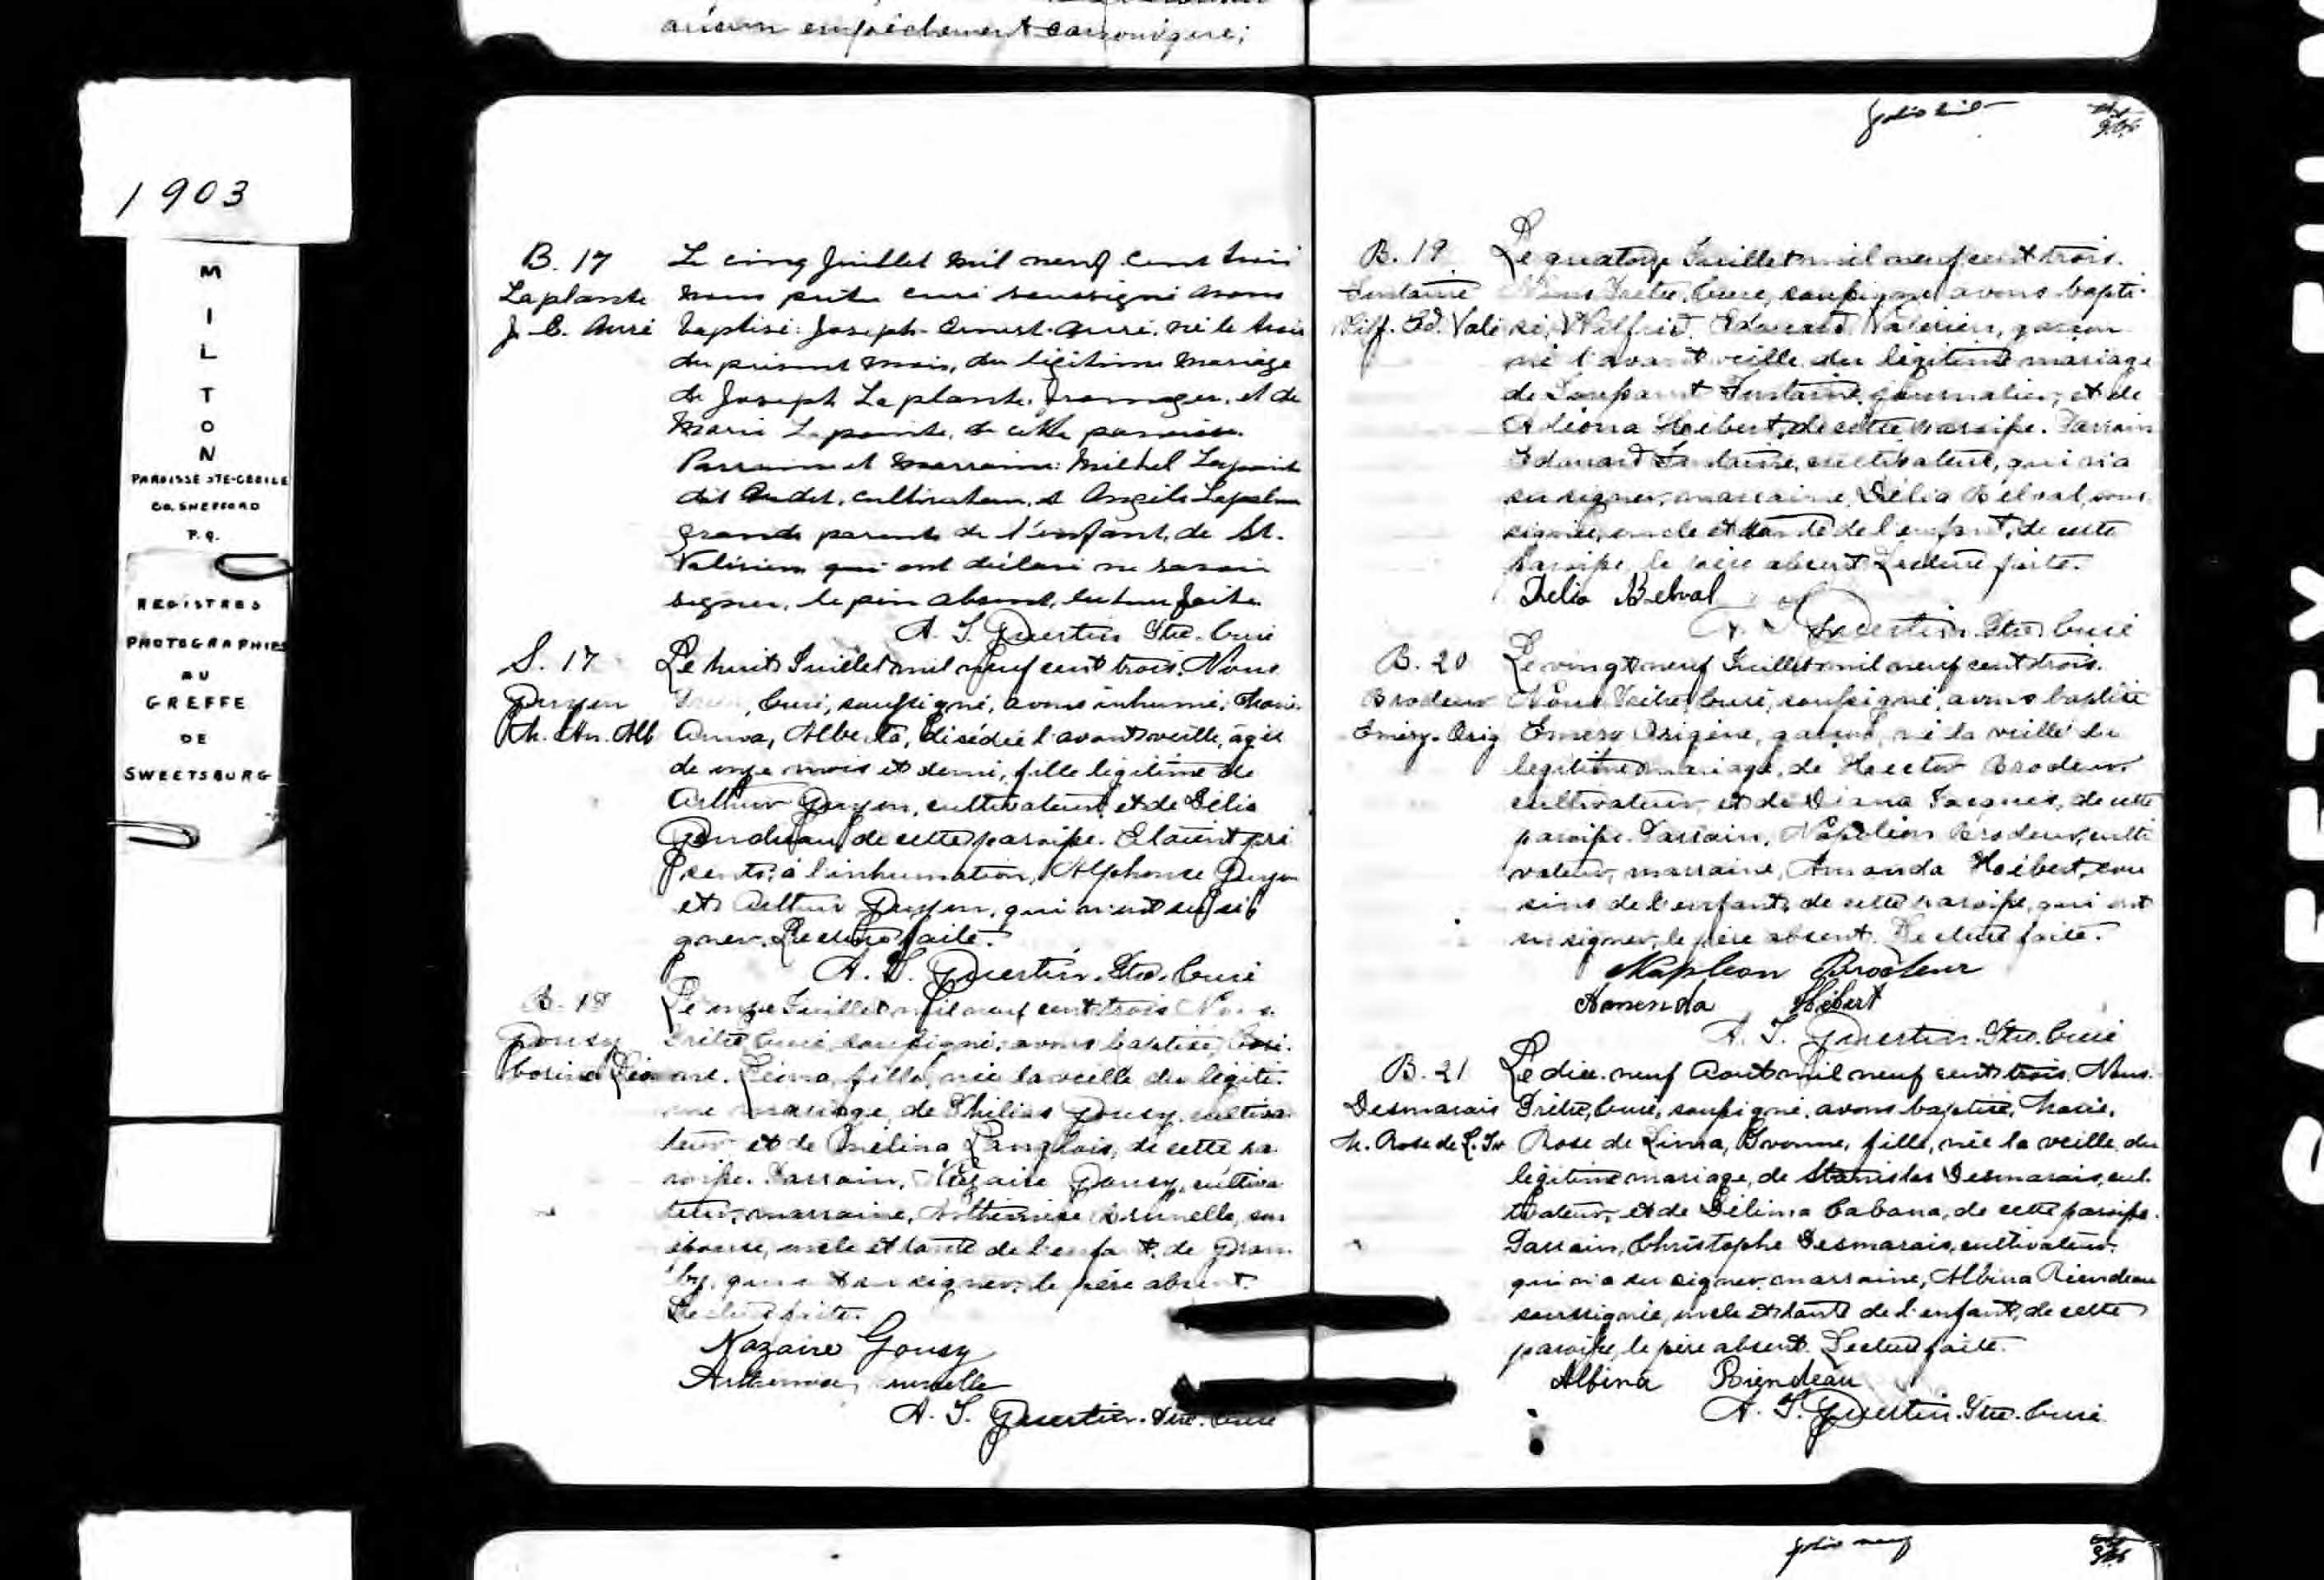 aucun empêchement
1903
MILTON
PAROISSE STE-CÉCILE
CO. SHEFFORD
P.Q.
REGISTRES
PHOTOGRAPHIES
AU
GREFFE
DE
SWEETSBURG
B. 17
Laplante
Le cinq Juillet mil neuf cent trois
nous prêtre curé soussigné avons
baptisé: Joseph né le trois
du présent mois, du légitime mariage
de Joseph Laplante, fromager, et de
Marie Lapointe, de cette paroisse.
Parrain et marraine: Michel Lapointe
dit Audet, cultivateur, et Angèle
grands parents de l'enfant, de St.
Valérien qui ont déclaré ne savoir
signer, le père absent, lecture faite.
A. T. Guertin Ptre. Curé
S. 17
Guyon
M. An. Alb
Le huit Juillet mil neuf cent trois. Nous
Curé, soussigné, avons inhumé, Marie
Anna, Alberta, décédée l'avant veille, âgée
de onze mois et demi, fille légitime de
Arthur Guyon, cultivateur, et de Délia
Gendreau de cette paroisse. Etaient pré
sents, à l'inhumation, Alphonse Guyon
et Arthur Guyon, qui n'ont su si
gner. Lecture faite.
A. T. Guertin. Ptre. Curé
B. 18
Gousy
Le onze Juillet mil neuf cent trois Nous
Prêtre Curé, soussigné, avons baptisé,
fille, née la veille du légiti
me mariage, de Philias Gousy, cultiva
teur et de Mélina Langlois, de cette pa
roisse. Parrain, Nazaire Gousy, cultiva
teur, marraine, Brunelle, son
épouse, oncle et tante de l'enfant, de Gran
by, qui ont su signer, le père absent.
Lecture faite.
Nazaire Gousy
A. T. Guertin. Ptre. Curé
folio huit
B. 19
Fontaine
Wilf. Ed. Valé
Le quatorze Juillet mil neuf cent trois.
Nous Prêtre, Curé, soussigné avons bapti
sé, Wilfrid, Edouard, Valérien, garçon
né l'avant veille, du légitime mariage
de Fontaine, journalier, et de
Hébert, de cette paroisse. Parrain
Edouard Fontaine, cultivateur, qui n'a
su signer, marraine, Délia Belval, sous
signée, oncle et tante de l'enfant, de cette
paroisse, le père absent. Lecture faite.
Delia Belval
A. T. Guertin. Ptre Curé
B. 20
Brodeur
Emery. Orig
Le vingt neuf Juillet mil neuf cent trois.
Nous, Prêtre Curé, soussigné, avons baptisé
Emery Origène, garçon, né la veille du
légitime mariage, de Hector Brodeur
cultivateur et de Diana Jacques, de cette
paroisse. Parrain, Napoléon Brodeur, culti
vateur, marraine, Amanda Hébert, cou
sins de l'enfant, de cette paroisse, qui ont
su signer, le père absent. Lecture faite.
Napoleon Brodeur
Amenda Hébert
A. T. Guertin. Ptre. Curé
B. 21
Desmarais
M. Rose de L. Iv
Le dix. neuf Aout mil neuf cent trois. Nous
Prêtre, Curé, soussigné, avons baptisé, Marie,
Rose de Lima, Yvonne, fille, née la veille, du
légitime mariage, de Stanislas Desmarais, cul
tivateur, et de Délima Cabana, de cette paroisse.
Parrain, Christophe Desmarais, cultivateur
qui n'a su signer, marraine, Albina Riendeau
soussignée, oncle et tante de l'enfant, de cette
paroisse, le père absent. Lecture faite.
Albina Riendeau
A. T. Guertin. Ptre. Curé
folio neuf